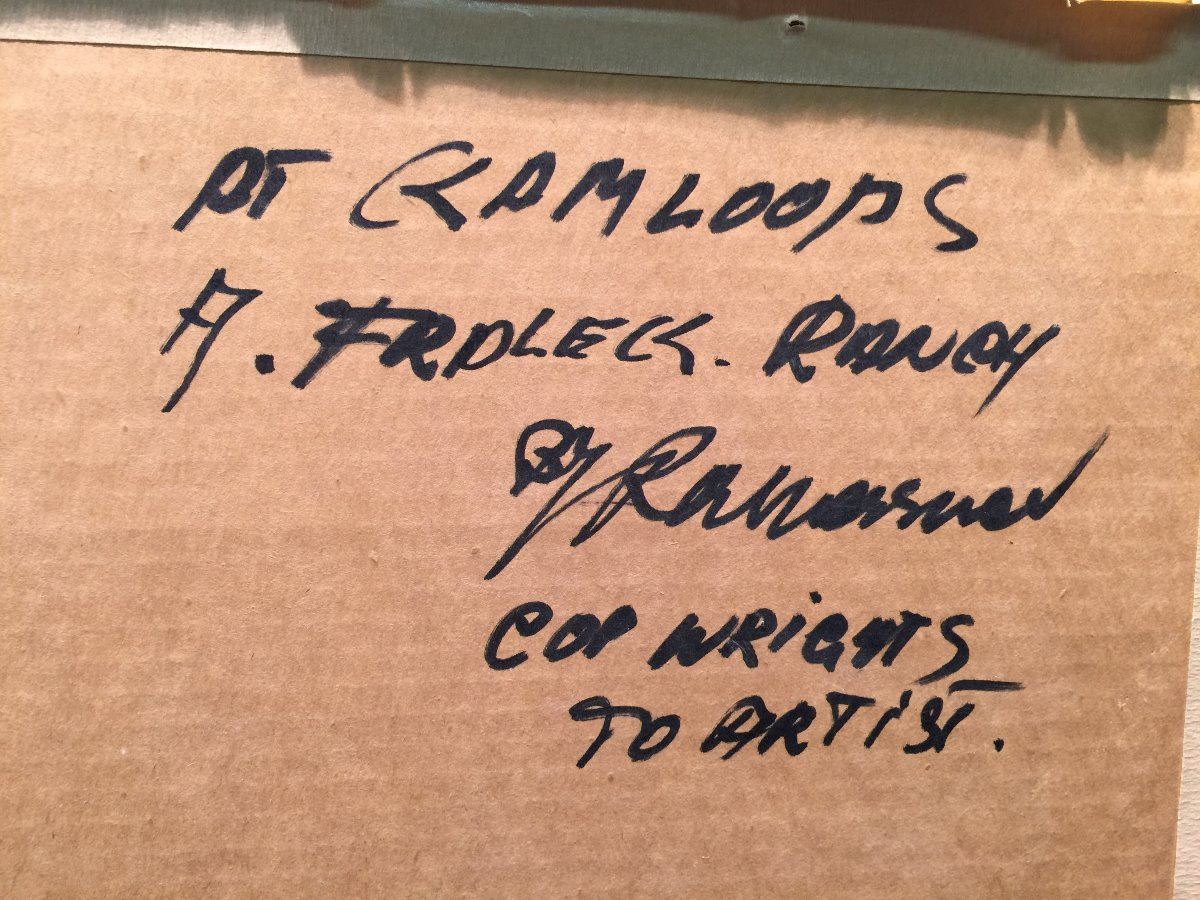 AT KAMLOOPS
A. FROLEK. RANCH
BY
COP WRIGHTS
TO ARTIST.